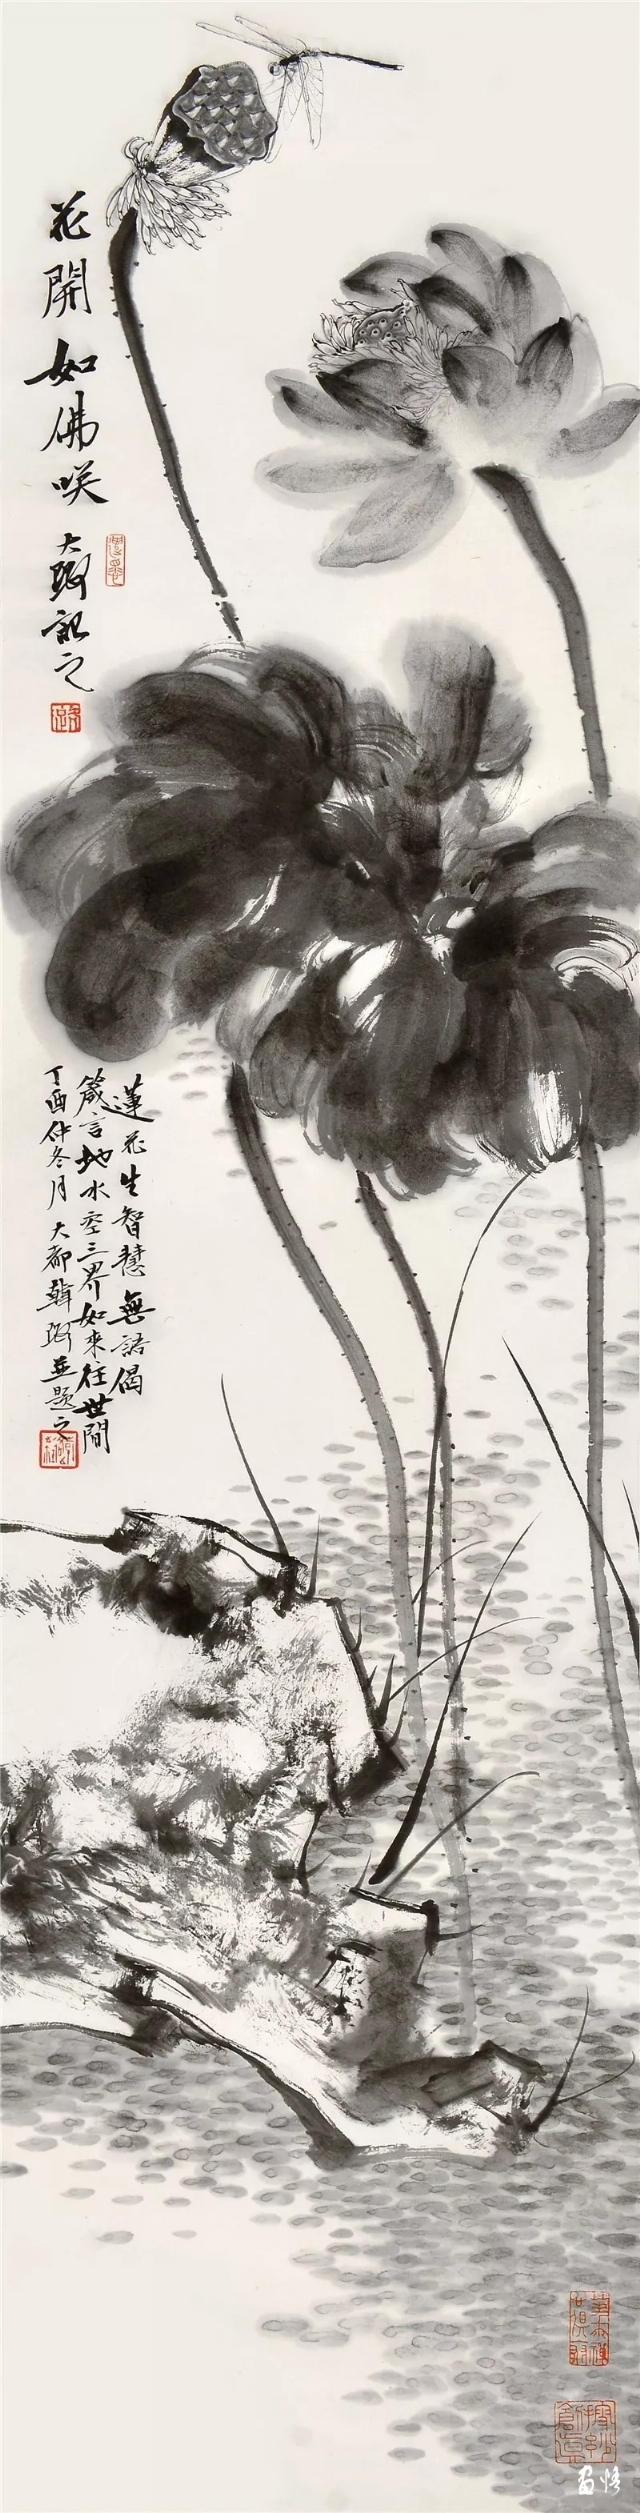 花開如佛咲
大弼記之
蓮花生智慧無語偈
箴言地水空三界如來往世間
丁酉仲冬月大都韓弼並題之